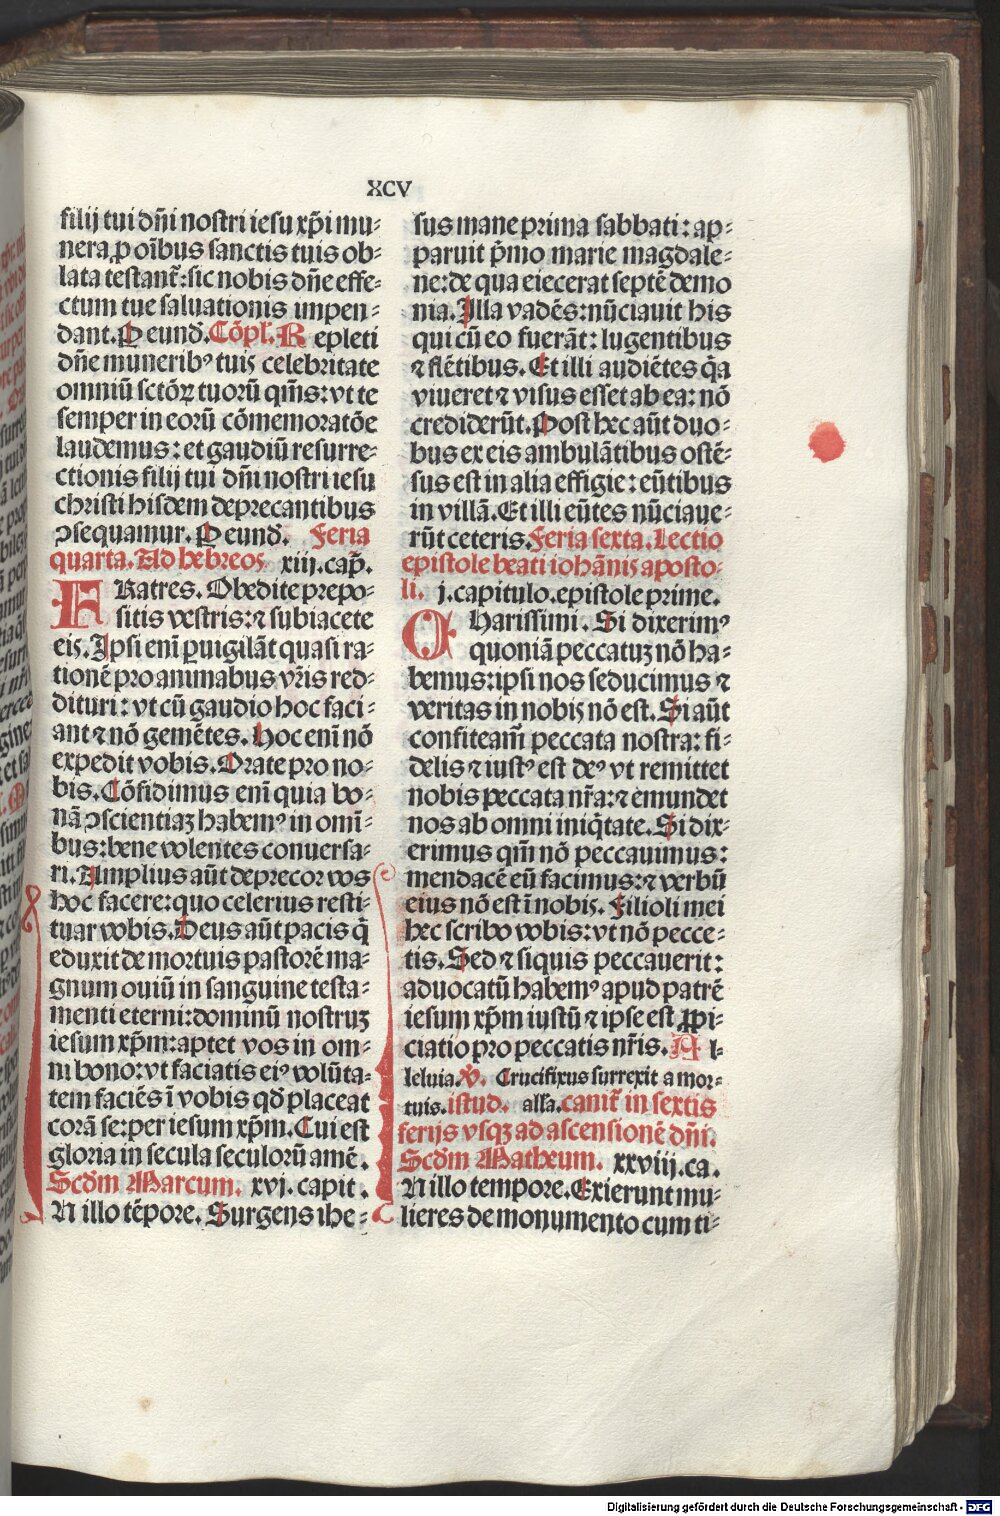 XCV
filij tui dñi nostri iesu xp̄i mu-
nera ꝓ oībus sanctis tuis ob-
lata testant᷑: sic nobis dñe effe-
ctum tue saluationis impen-
dant. Per eund̄. Cōpl̄. Repleti
dñe munerib⁹ tuis celebritate
omniū sctōꝝ tuorū qm̄s: vt te
semper in eorū cōmemoratōe
laudemus: et gaudiū resurre-
ctionis filij tui dñi nostri iesu
christi hisdem deprecantibus
ꝯsequamur. Per eund̄. Feria
quarta. Ad hebreos xiij. cap̄.
FRatres. Obedite prepo-
sitis vestris: ⁊ subiacete
eis. Ipsi eni ꝑuigilāt quasi ra-
tionē pro animabus vr̄is red-
dituri: vt cū gaudio hoc faci-
ant ⁊ nō gemētes. Hoc enī nō
expedit vobis. Orate pro no-
bis. Cōfidimus enī quia bo-
nā ꝯscientiaꝫ habem⁹ in omī-
bus: bene volentes conuersa-
ri. Amplius aūt deprecor vos
hoc facere: quo celerius resti-
tuar vobis. Deus aūt pacis q̄
eduxit de mortuis pastorē ma-
gnum ouiū in sanguine testa-
menti eterni: dominū nostruꝫ
iesum xp̄m: aptet vos in om-
ni bono: vt faciatis ei⁹ volūta-
tem faciēs ī vobis qd̄ placeat
corā se: per iesum xp̄m. Cui est
gloria in secula seculorū amē.
Scd̄m Marcum. xvj. capit.
IN illo tēpore. Surgens ihe-
sus mane prima sabbati: ap-
paruit p̄mo marie magdale-
ne: de qua eiecerat septē demo
nia. Illa vadēs: nūciauit his
qui cū eo fuerāt: lugentibus
⁊ flētibus. Et illi audiētes q̄a
viueret ⁊ visus esset ab ea: nō
crediderūt. Post hec aūt duo-
bus ex eis ambulātibus ostē-
sus est in alia effigie: eūtibus
in villā. Et illi eūtes nūciaue-
rūt ceteris. Feria sexta. Lectio
epistole beati iohānis aposto-
li. j. capitulo. epistole prime.
CHarissimi. Si dixerim⁹
quoniā peccatuꝫ nō ha-
bemus: ipsi nos seducimus ⁊
veritas in nobis nō est. Si aūt
confiteam̄ peccata nostra: fi-
delis ⁊ iust⁹ est de⁹ vt remittet
nobis peccata nr̄a: ⁊ emundet
nos ab omni iniq̄tate. Si dix-
erimus qm̄ nō peccauimus:
mendacē eū facimus: ⁊ verbū
eius nō est ī nobis. Filioli mei
hec scribo vobis: vt nō pecce-
tis. Sed ⁊ siquis peccauerit:
aduocatū habem⁹ apud patrē
iesum xp̄m iustū ⁊ ipse est ꝓpi-
ciatio pro peccatis nr̄is. Al-
leluia. V̄. Crucifixus surrexit a mor-
tuis. istud. all̄a. canit᷑ in sextis
ferijs vsqꝫ ad ascensionē dn̄i.
Scd̄m Matheum. xxviij. ca.
IN illo tempore. Exierunt mu-
lieres de monumento cum ti-
Digitalisierung gefördert durch die Deutsche Forschungsgemeinschaft - DFG